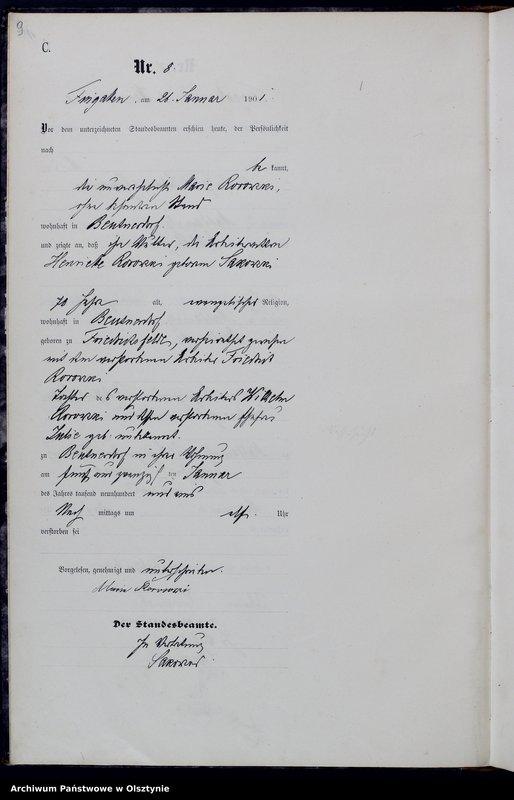 9
C.
Nr. 8.
am 26. Januar 1901.
Vor dem unterzeichneten Standesbeamten erschien heute, der Persönlichkeit
nach
be kannt,
die unverehelichte Marie
ohne besonderen Stand
wohnhaft in Beutnerdorf.
und zeigte an, daß ihre Mutter, die
Henriette geborene Sakowski
70 Jahre alt, evangelischer Religion,
wohnhaft in Beutnerdorf
geboren zu Friedrichsfelde, verheirathet gewesen
mit dem verstorbenen Arbeiter Friedrich
Tochter des verstorbenen Arbeiters Wilhelm
und dessen verstorbenen Ehefrau
Julie geb. unbekannt.
zu Beutnerdorf in ihrer Wohnung
am fünf und zwanzigsten Januar
des Jahres tausend neunhundert und eins
Nach mittags um Uhr
verstorben sei
Vorgelesen, genehmigt und unterschrieben.
Marie
Der Standesbeamte.
In Vertretung
Archiwum Państwowe w Olsztynie